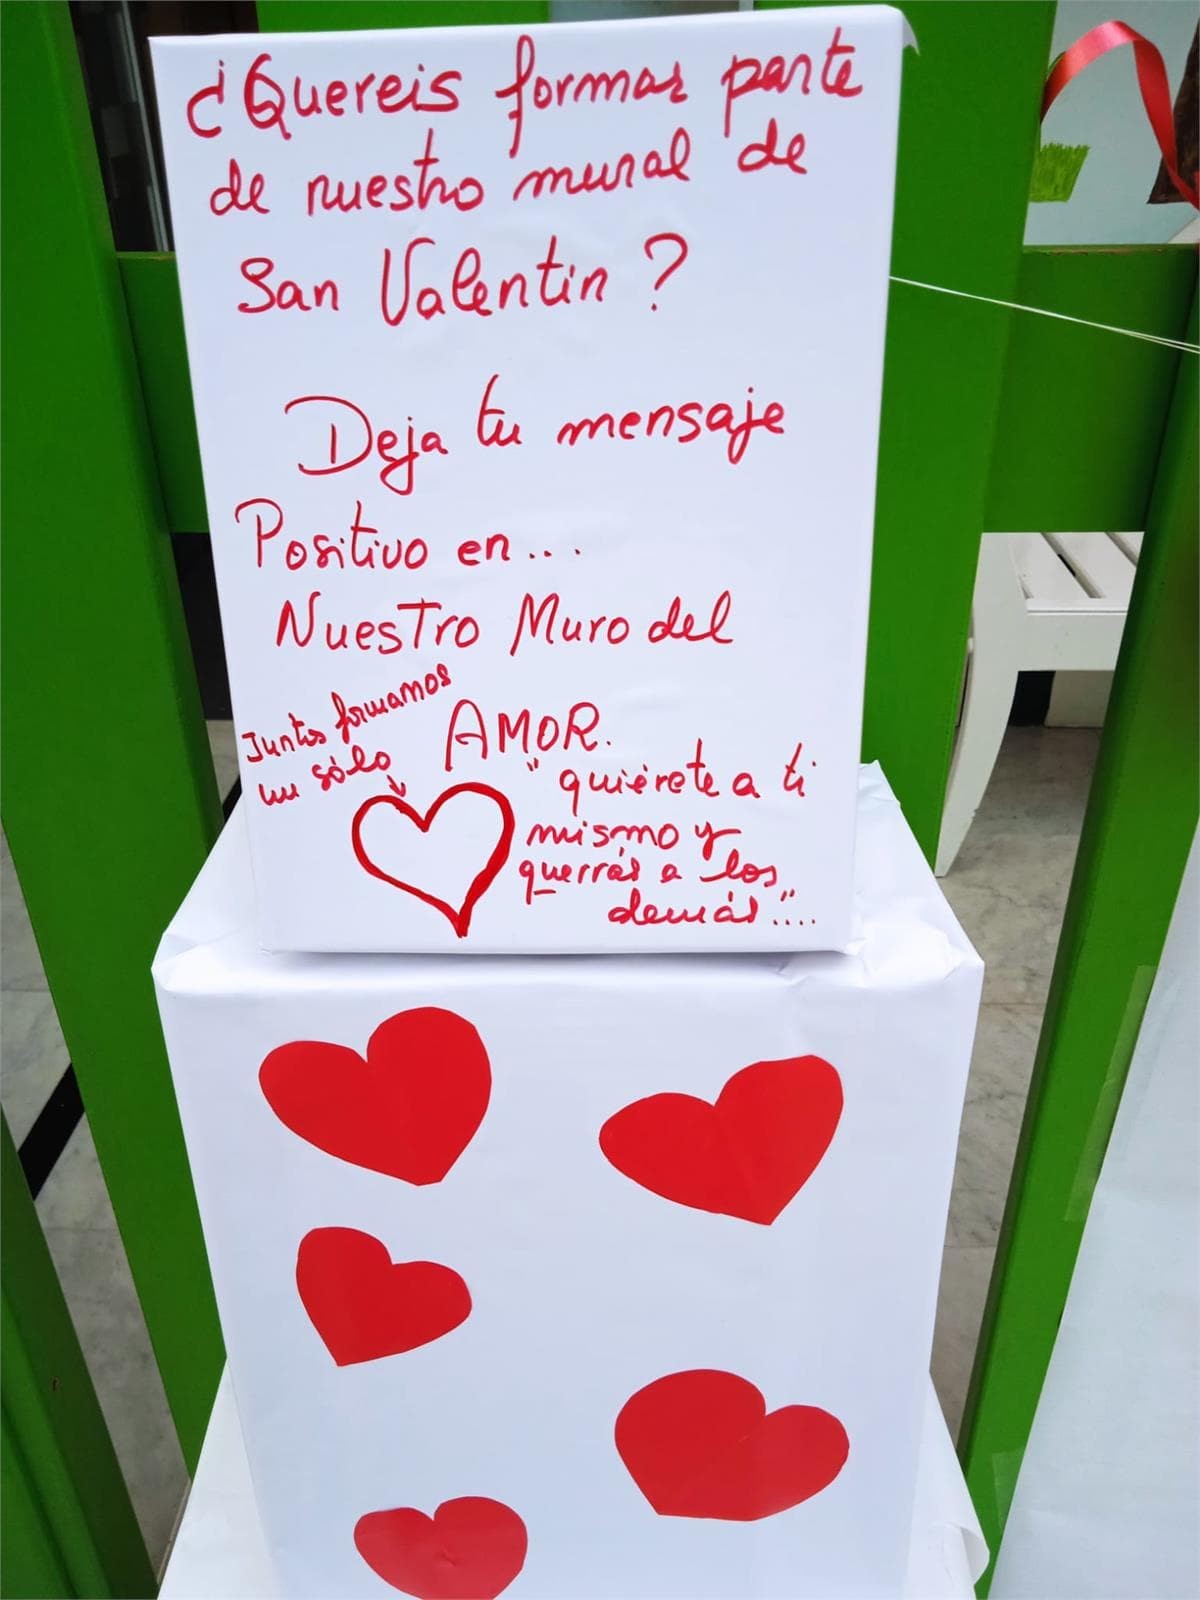 ¿Quereis formar parte
de nuestro mural de
San Valentin?
Deja tu mensaje
Positivo en...
Nuestro Muro del
AMOR.
Juntos formamos
un sólo
"quiérete a ti
mismo y
querrás a los
demás"....